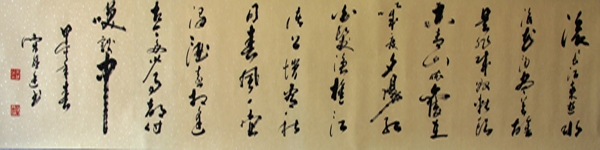 滚滚长江东逝水
浪花淘尽英雄
是非成败转头
空青山依旧在
几度夕阳红
白发渔樵江
渚上惯看秋
月春风一壶
浊酒喜相逢
古今多少事都付
笑谈中